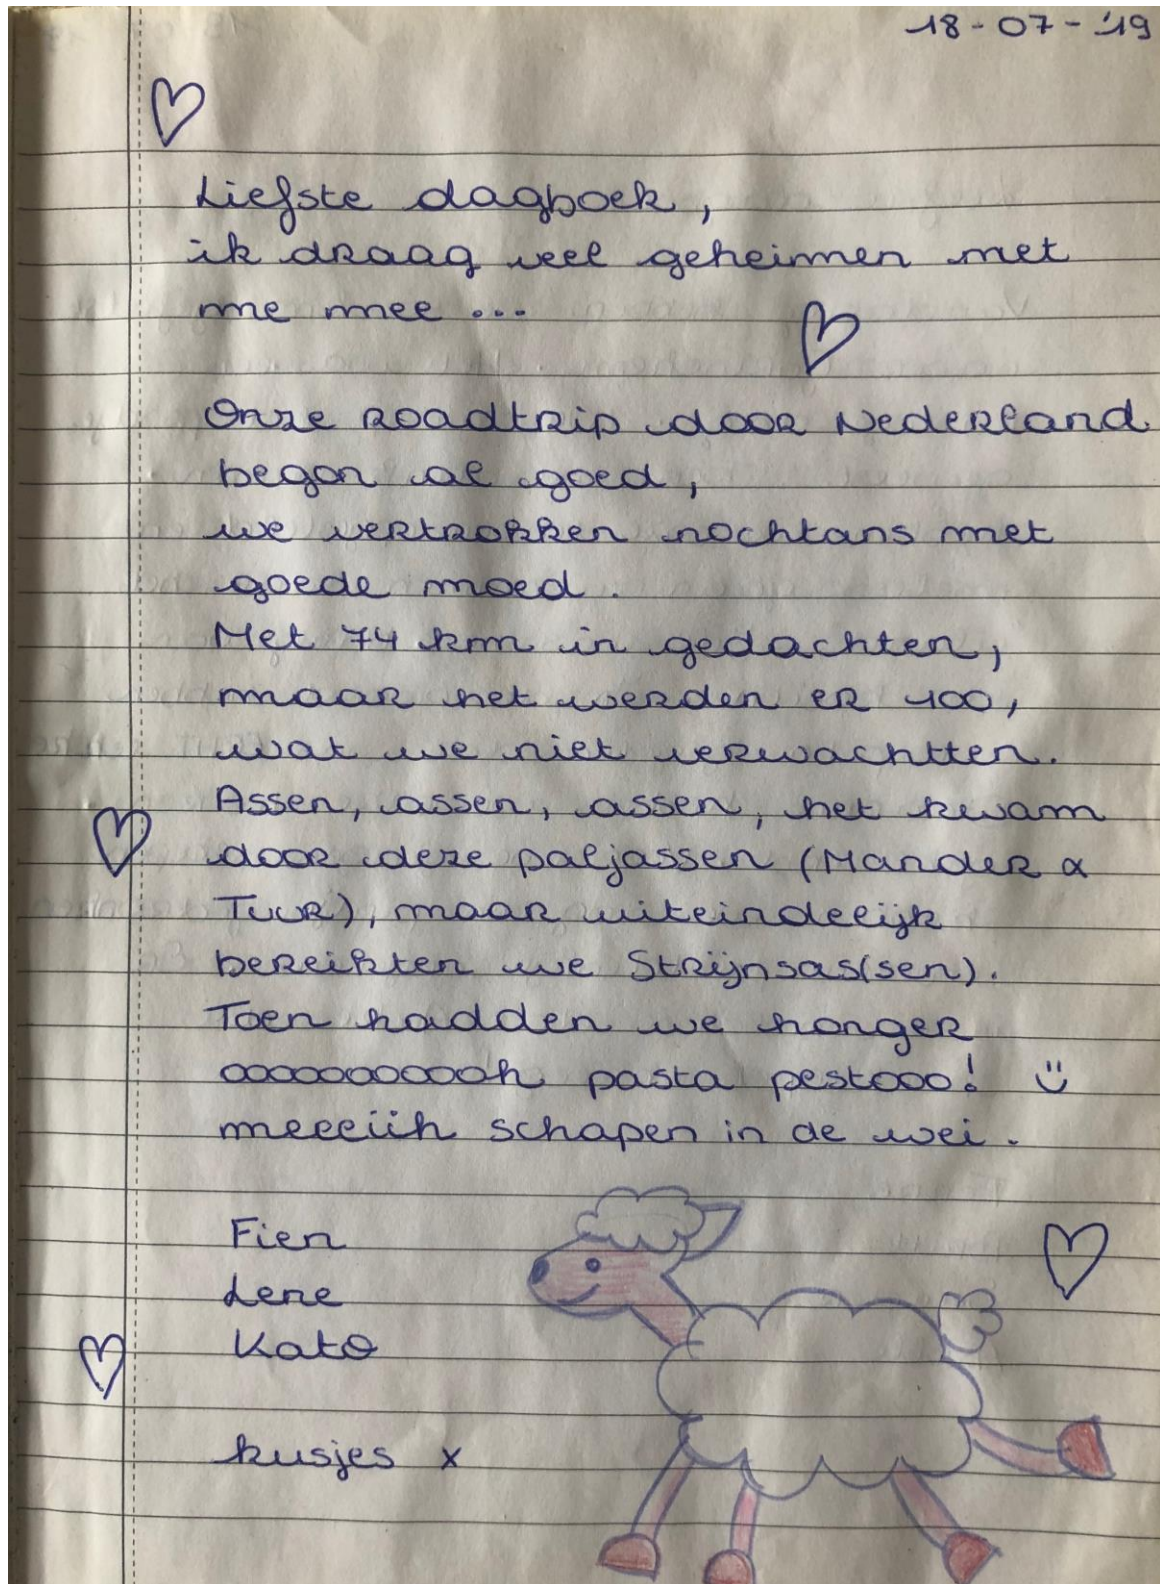 18-07-'19
Liefste dagboek,
ik draag veel geheimen met
me mee ...
Onze roadtrip door Nederland
begon al goed,
we vertrokken nochtans met
goede moed.
Met 74 km in gedachten,
maar het werden er 100,
wat we niet verwachtten.
Assen, assen, assen, het kwam
door deze paljassen (Mander &
Tuur), maar uiteindelijk
bereikten we Strijnsas(sen).
Toen hadden we honger
ooooooooooh pasta pestooo! ü
meeeiih schapen in de wei.
Fien
Lene
Kato
kusjes x